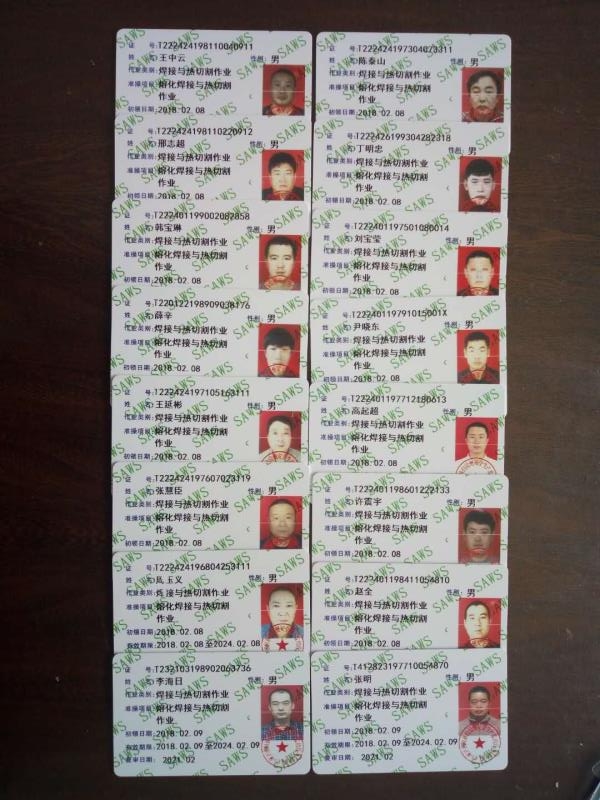 证 号:T222424198110040911
姓 名:王中云 性别:男
作业类别:焊接与热切割作业
准操项目:熔化焊接与热切割
作业
初领日期:2018.02.08
证 号:T222424198110220912
姓 名:邢志超 性别:男
作业类别:焊接与热切割作业
准操项目:熔化焊接与热切割
作业
初领日期:2018.02.08
证 号:T222401199002082858
姓 名:韩宝琳 性别:男
作业类别:焊接与热切割作业
准操项目:熔化焊接与热切割
作业
初领日期:2018.02.08
证 号:T220122198909038176
姓 名:薛辛 性别:男
作业类别:焊接与热切割作业
准操项目:熔化焊接与热切割
作业
初领日期:2018.02.08
证 号:T222424197105163111
姓 名:王延彬 性别:男
作业类别:焊接与热切割作业
准操项目:熔化焊接与热切割
作业
初领日期:2018.02.08
证 号:T222424197607023119
姓 名:张慧臣 性别:男
作业类别:焊接与热切割作业
准操项目:熔化焊接与热切割
作业
初领日期:2018.02.08
证 号:T222424196804253111
姓 名: 玉义 性别:男
作业类别:焊接与热切割作业
准操项目:熔化焊接与热切割
作业
初领日期:2018.02.08
有效期限:2018.02.08至2024.02.08
证 号:T232103198902063736
姓 名:李海日 性别:男
作业类别:焊接与热切割作业
准操项目:熔化焊接与热切割
作业
初领日期:2018.02.09
有效期限:2018.02.09至2024.02.09
复审日期:2021.02
证 号:T222424197304073311
姓 名:陈泰山 性别:男
作业类别:焊接与热切割作业
准操项目:熔化焊接与热切割
作业
初领日期:2018.02.08
证 号:T222426199304282318
姓 名:丁明忠 性别:男
作业类别:焊接与热切割作业
准操项目:熔化焊接与热切割
作业
初领日期:2018.02.08
证 号:T222401197501080014
姓 名:刘宝莹 性别:男
作业类别:焊接与热切割作业
准操项目:熔化焊接与热切割
作业
初领日期:2018.02.08
证 号:T22240119791015001X
姓 名:尹晓东 性别:男
作业类别:焊接与热切割作业
准操项目:熔化焊接与热切割
作业
初领日期:2018.02.08
证 号:T222401197712180613
姓 名:高起超 性别:男
作业类别:焊接与热切割作业
准操项目:熔化焊接与热切割
作业
初领日期:2018.02.08
证 号:T222401198601222133
姓 名:许震宇 性别:男
作业类别:焊接与热切割作业
准操项目:熔化焊接与热切割
作业
初领日期:2018.02.08
证 号:T222401198411054810
姓 名:赵全 性别:男
作业类别:焊接与热切割作业
准操项目:熔化焊接与热切割
作业
初领日期:2018.02.08
证 号:T412823197710054870
姓 名:张明 性别:男
作业类别:焊接与热切割作业
准操项目:熔化焊接与热切割
作业
初领日期:2018.02.09
有效期限:2018.02.09至2024.02.09
复审日期:2021.02